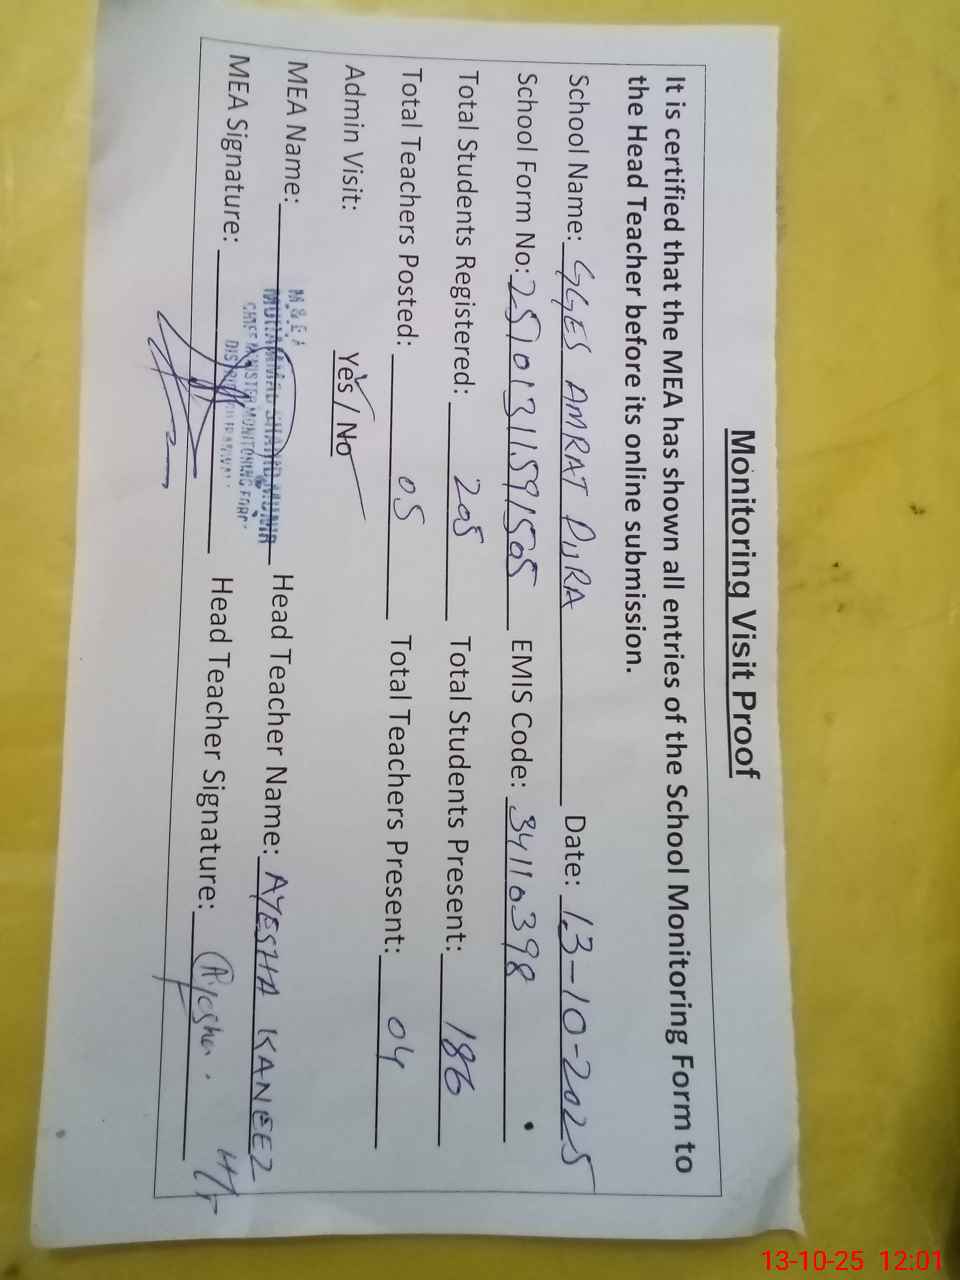 Monitoring Visit Proof
It is certified that the MEA has shown all entries of the School Monitoring Form to
the Head Teacher before its online submission.
School Name: GGES AMRAT PURA Date: 13-10-2025
School Form No: EMIS Code: 34110398
Total Students Registered: 205 Total Students Present: 186
Total Teachers Posted: 05 Total Teachers Present: 04
Admin Visit: Yes / No
M & E A
MEA Name: MUHAMMAD Head Teacher Name: AYESHA KANEEZ
CHIEF MINISTER MONITORING FORC
MEA Signature: Head Teacher Signature: Ayesha.
13-10-25 12:01